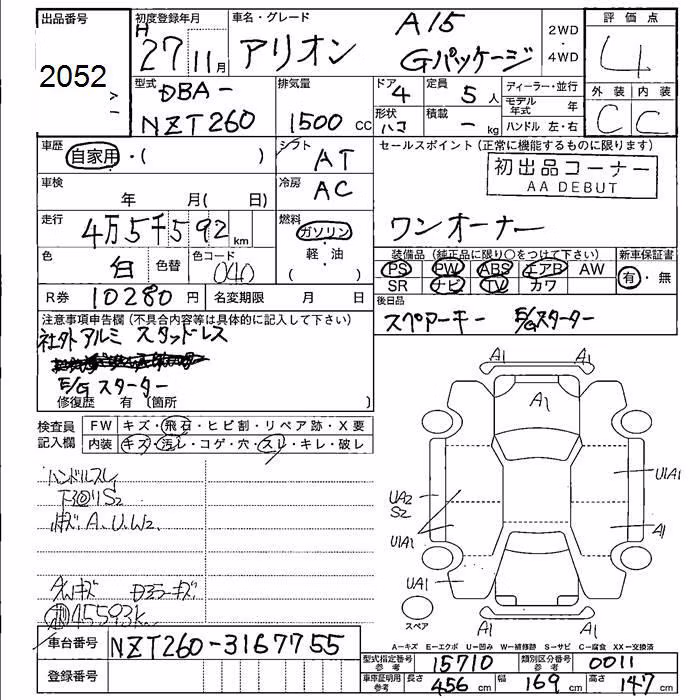 出品番号
2052
初度登録年月
H
27 11月
車名・グレード
アリオン
A15
Gパッケージ
2WD
・
4WD
評価点
4
外装 内装
C C
型式
DBA-
NZT260
排気量
1500 cc
ドア
4
定員
5人
ディーラー・並行
モデル年式 年
形状
ハコ
積載
- kg
ハンドル 左・右
車歴
自家用・( )
シフト
AT
セールスポイント(正常に機能するものに限ります)
初出品コーナー
AA DEBUT
ワンオーナー
車検
年 月( 日)
冷房
AC
走行
4万5千592km
燃料
ガソリン
・
軽・油
( )
色
白
色替
色コード
040
R券 10280円
名変期限 月 日
装備品(純正品に限り○をつけて下さい)
PS PW ABS エアB AW
SR ナビ TV カワ
新車保証書
有・無
後日品
スペアーキー E/Gスターター
注意事項申告欄(不具合内容等は具体的に記入して下さい)
社外アルミ スタッドレス
E/Gスターター
修復歴 有(箇所 )
検査員
記入欄
FW キズ・飛石・ヒビ割・リペア跡・X要
内装 キズ・汚レ・コゲ・穴・スレ・キレ・破レ
ハンドルスレ
下回りS2
A、U、W2
キズ
45593k
A1 A1
A1
U1A1
UA2
S2
U1A1
A1
UA1
A1 A1
スペア
A-キズ E-エクボ U-凹み W-補修跡 S-サビ C-腐食 XX-交換済
車台番号 NZT260-3167755
登録番号
型式指定番号
参考
15710
類別区分番号
参考
0011
車庫証明用
参考
長さ 456cm
幅 169cm
高さ 147cm